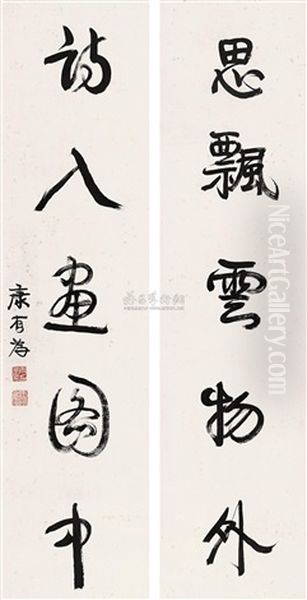 思飄雲物外
詩入畫圖中
康有為
NiceArtGallery.com